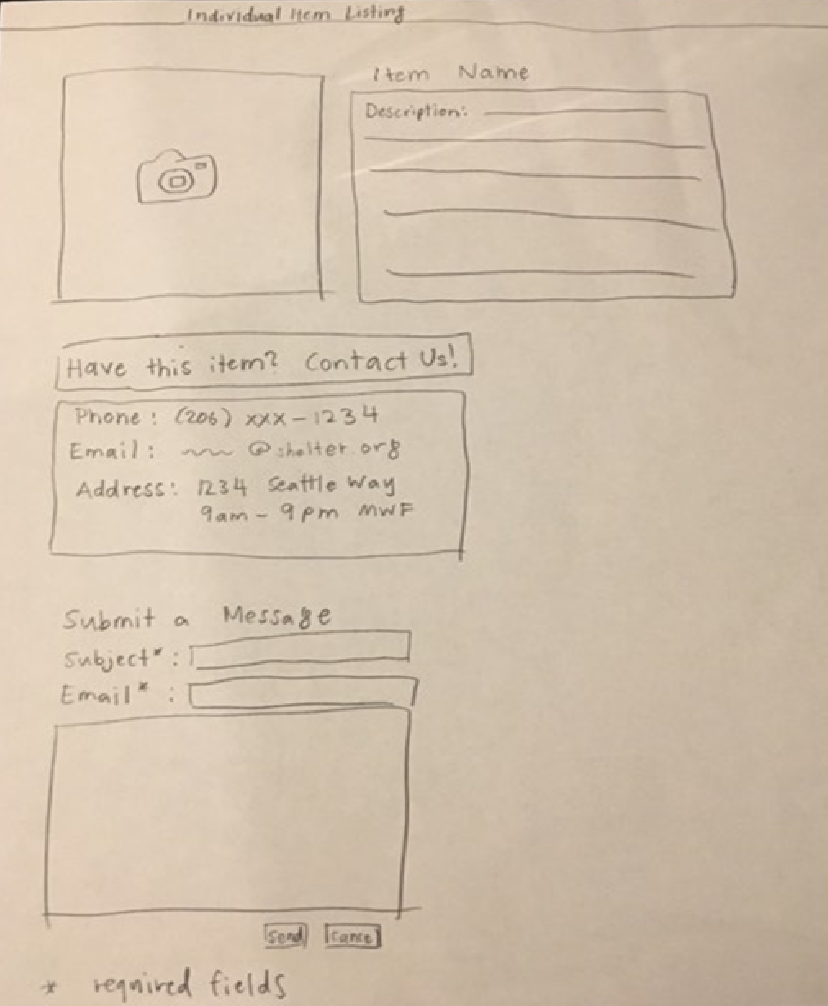 Individual Item Listing
Item Name
Description:
Have this item? Contact Us!
Phone : (206) xxx-1234
Email : @shelter.org
Address: 1234 Seattle Way
9am - 9pm MWF
Submit a Message
Subject* :
Email* :
Send Cancel
* required fields